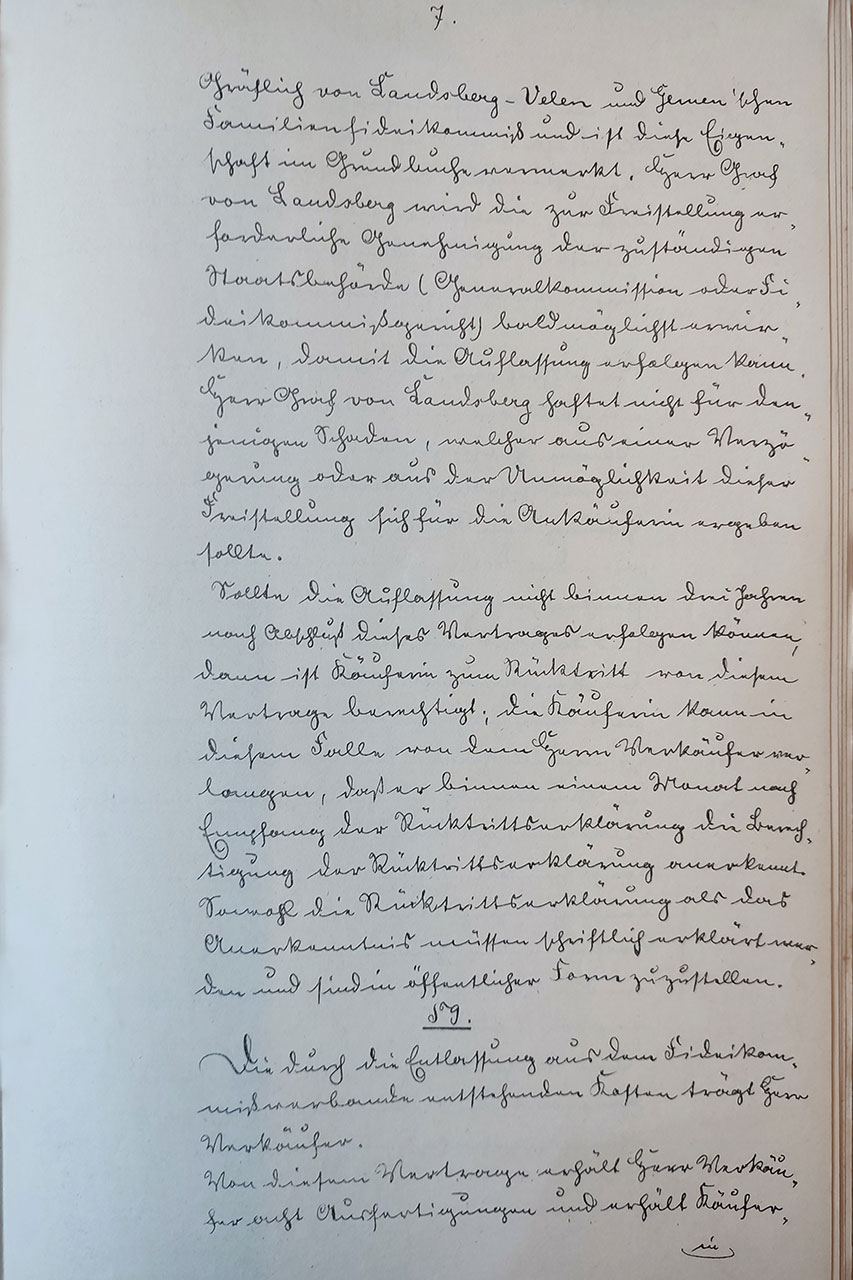 7.
Gräflich von Landsberg-Velen und Gemen'schen
Familienfideikommiß und ist diese Eigen-
schaft im Grundbuche vermerkt. Herr Graf
von Landsberg wird die zur Freistellung er-
forderliche Genehmigung der zuständigen
Staatsbehörde (Generalkommission oder Fi-
deikommißgericht) baldmöglichst erwir-
ken, damit die Auflassung erfolgen kann.
Herr Graf von Landsberg haftet nicht für den-
jenigen Schaden, welcher aus einer Verzö-
gerung oder aus der Unmöglichkeit dieser
Freistellung sich für die Ankäuferin ergeben
sollte.
Sollte die Auflassung nicht binnen drei Jahren
nach Abschluß dieses Vertrages erfolgen können,
dann ist Käuferin zum Rücktritt von diesem
Vertrage berechtigt; die Käuferin kann in
diesem Falle von dem Herrn Verkäufer ver-
langen, daß er binnen einem Monat nach
Empfang der Rücktrittserklärung die Berech-
tigung der Rücktrittserklärung anerkennt.
Sowohl die Rücktrittserklärung als das
Anerkenntnis müssen schriftlich erklärt wer-
den und sind in öffentlicher Form zuzustellen.
§ 9.
Die durch die Entlassung aus dem Fideikom-
mißverbande entstehenden Kosten trägt Herr
Verkäufer.
Von diesem Vertrage erhält Herr Verkäu-
fer acht Ausfertigungen und erhält Käufer-
in